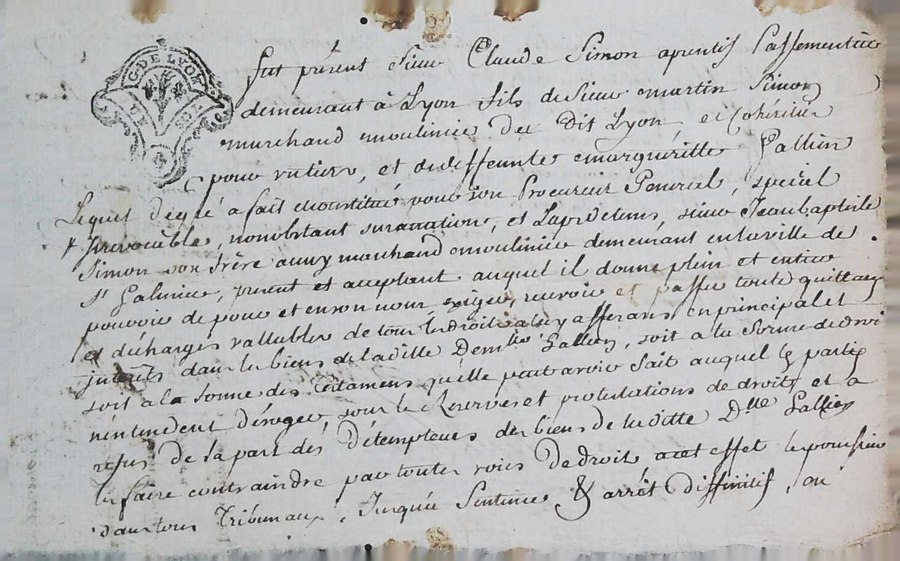 G. DE LYON
fut présent Sieur Claude Simon aprentif Passementier
demeurant à Lyon fils de Sieur martin Simon
marchand moulinier du Dit Lyon et Cohéritier
pour un tiers, et de deffeunte marguéritte Gallien
Lequel dégré a fait et constitué pour son Procureur General, spécial
& Irrevocable, nonobstant surannation, et Laps de tems, sieur Jean baptiste
Simon son frère aussy marchand moulinier demeurant en la ville de
St Galmier, présent et acceptant auquel il donne plein et entier
pouvoir de pour et en son nom, exiger, recevoir et passer toute quittances
et décharges vallables de tous les droits a luy afferans en principal et
intérêts dans les biens de la ditte Demlle Gallien, soit a la forme de droit
soit a la forme des testamens qu'elle peut avoir fait auquel les parties
n'entendent déroger, sous les Reserves et protestations de droits et a
refus de la part des détempteurs des biens de laditte Dlle Gallien
les faire contraindre par toutes voies de droit a cet effet les poursuivre
dans tous Tribunaux, Jusqu'a Sentence & arrêt diffinitif, ou